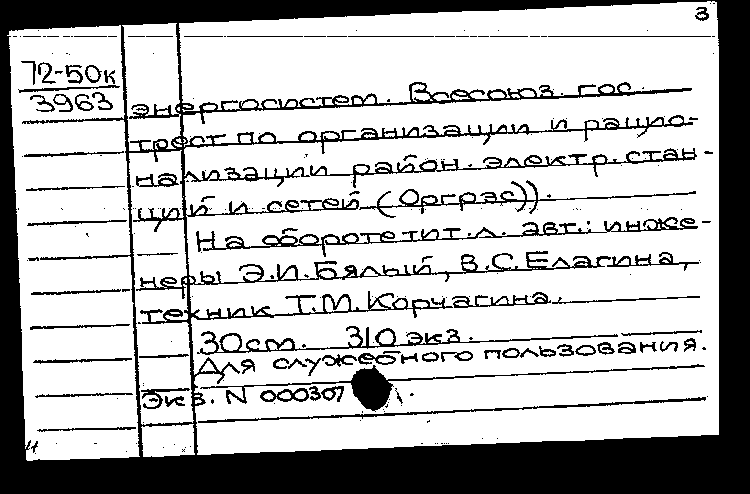 3
72-50к
3963
энергосистем. Всесоюз. гос.
трест по организации и рацио-
нализации район. электр. стан-
ций и сетей (Оргрэс)).
На обороте тит. л. авт.: инже-
неры Э.И. Бялый, В.С. Елагина,
техник Т.М. Корчагина.
30 см. 310 экз.
Для служебного пользования.
Экз. N 000307